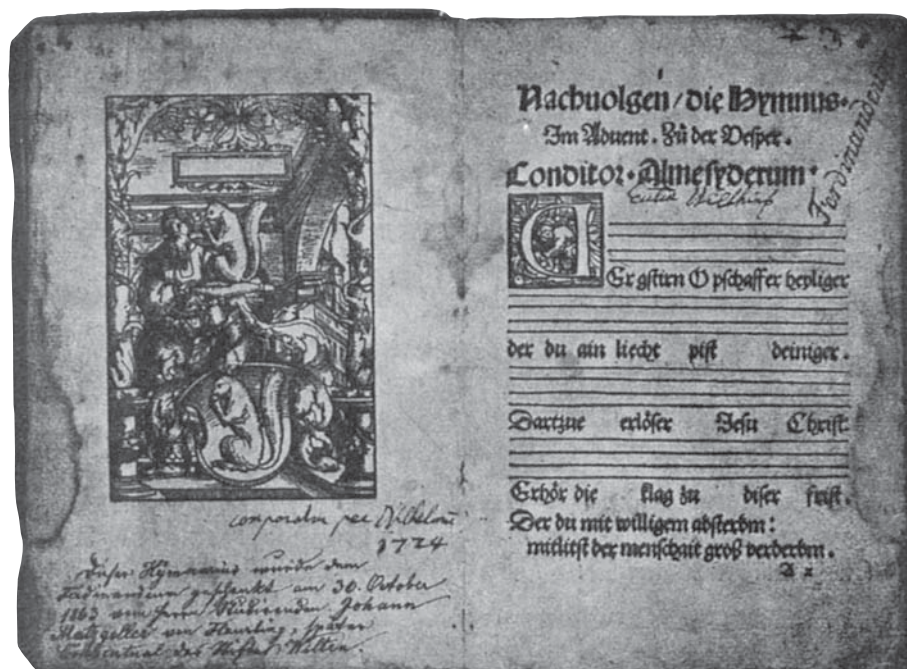 comparatu per Wilhelmū
1724
Dieser Hymnarius wurde dem
Ferdinandeum geschenkt am 30. October
1863 vom Herrn Studirenden Johann
Matzgeller von Flaurling, später
Conventual des Stiftes Wilten.
Nachuolgen / die Hymnus.
Im Aduent. Zů der Vesper.
Conditor. Almesyderum.
Ferdinandeum
ER gstirn O pschaffer heyliger
der du ain liecht pist deiniger.
Dartzue erlöser Jesu Christ.
Erhör die klag zu diser frist.
Der du mit willigem absterbm:
mitlitst der menschait groß verderbm.